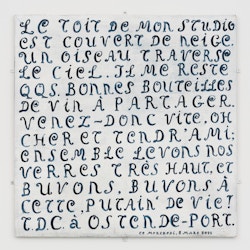 LE TOIT DE MON STUDIO
EST COUVERT DE NEIGE.
UN OISEAU TRAVERSE
LE CIEL. IL ME RESTE
QQS. BONNES BOUTEILLES
DE VIN À PARTAGER.
VENEZ-DONC VITE. OH
CHER ET TENDR'AMI;
ENSEMBLE LEVONS NOS
VERRES TRÈS HAUT, ET
BUVONS, BUVONS À
CETTE, PUTAIN' DE VIE!
T.D.C. À OSTEN.DE-PORT.
MARS